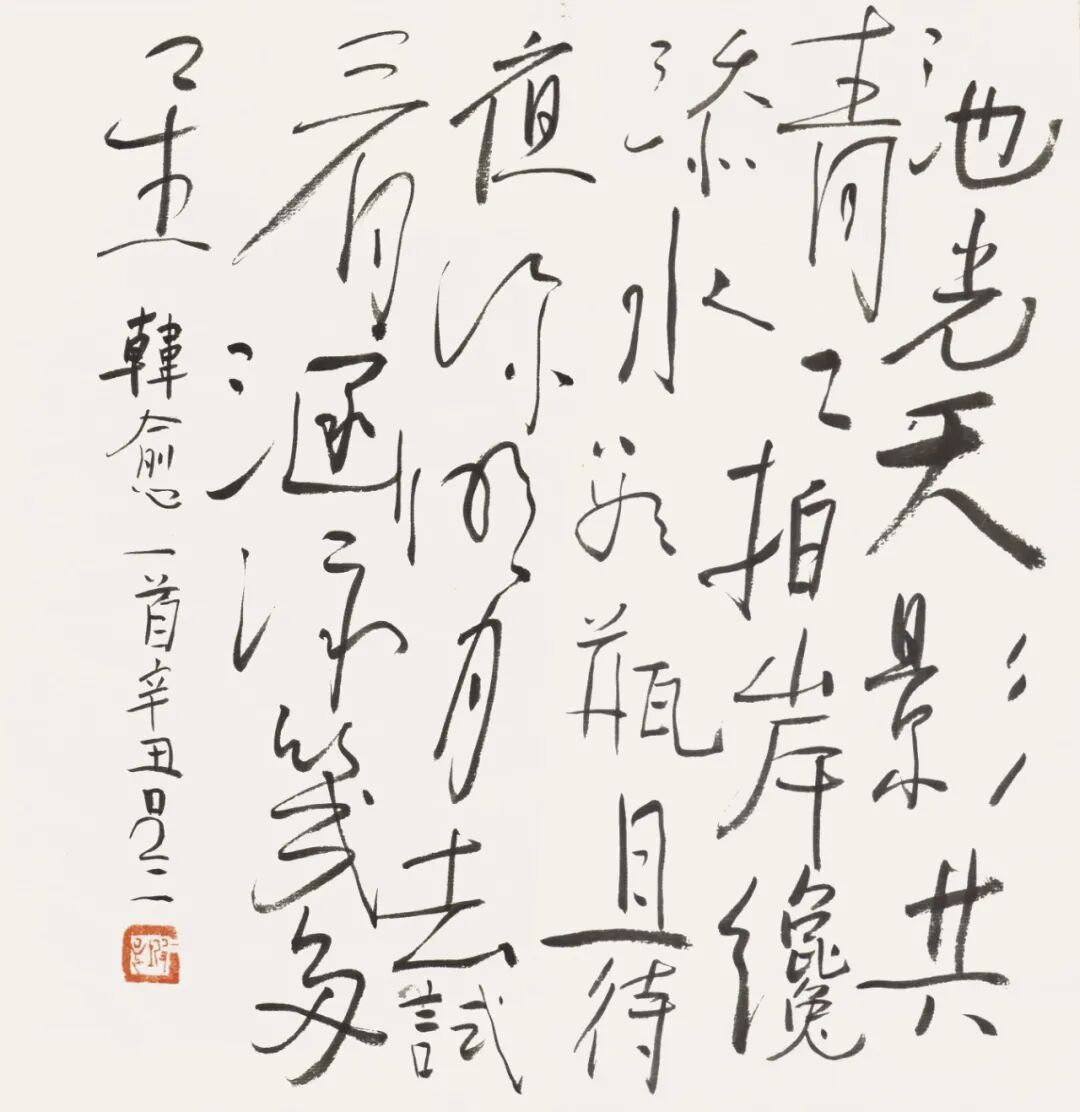 池光天影共
青〻拍岸纔
添水數瓶且待
夜深明月去試
看涵泳幾多
星
韓愈一首辛丑